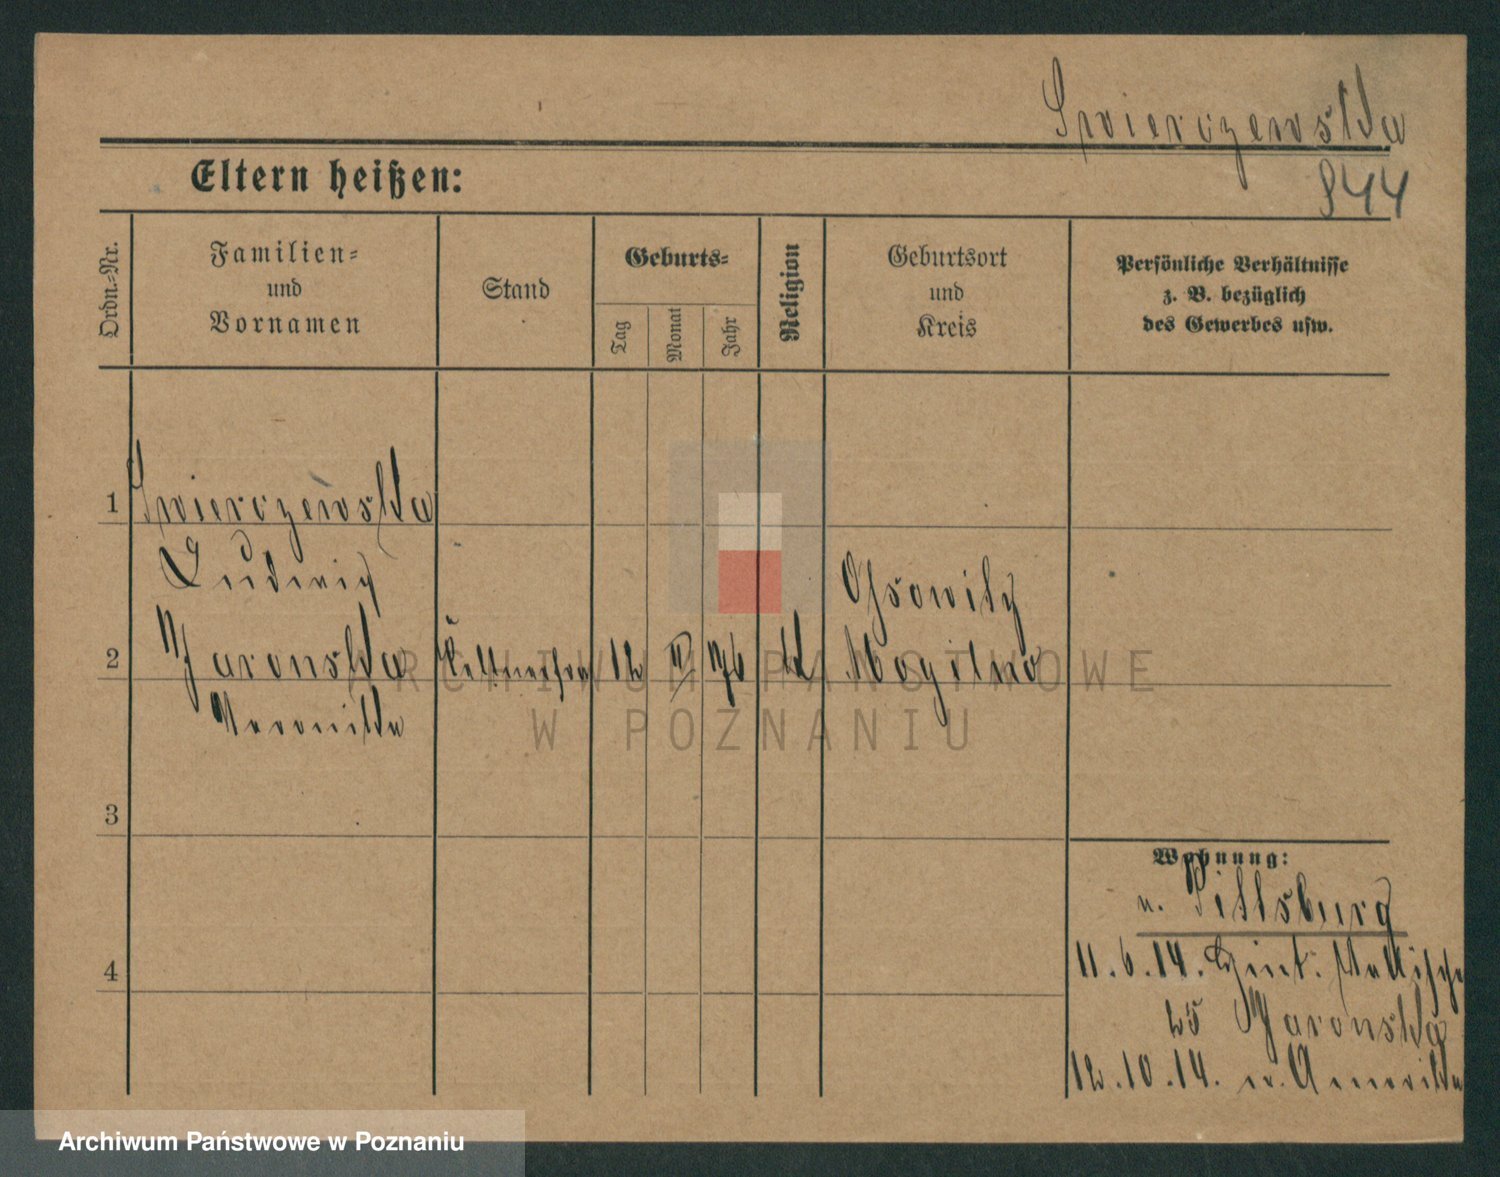 Swierczewska
944
Eltern heißen:
Ordn.-Nr.
Familien-
und
Vornamen
Stand
Geburts-
Tag
Monat
Jahr
Religion
Geburtsort
und
Kreis
Persönliche Verhältnisse
z. B. bezüglich
des Gewerbes usw.
1
Swierczewska
Ludwig
2
Jaronska
12
II
76
K
Ossowitz
Mogilno
Veronika
3
Wohnung:
n. Pittsburg
4
11.6.14.
25 Jaronska
12.10.14. n. Amerika
ARCHIWUM PAŃSTWOWE
W POZNANIU
Archiwum Państwowe w Poznaniu